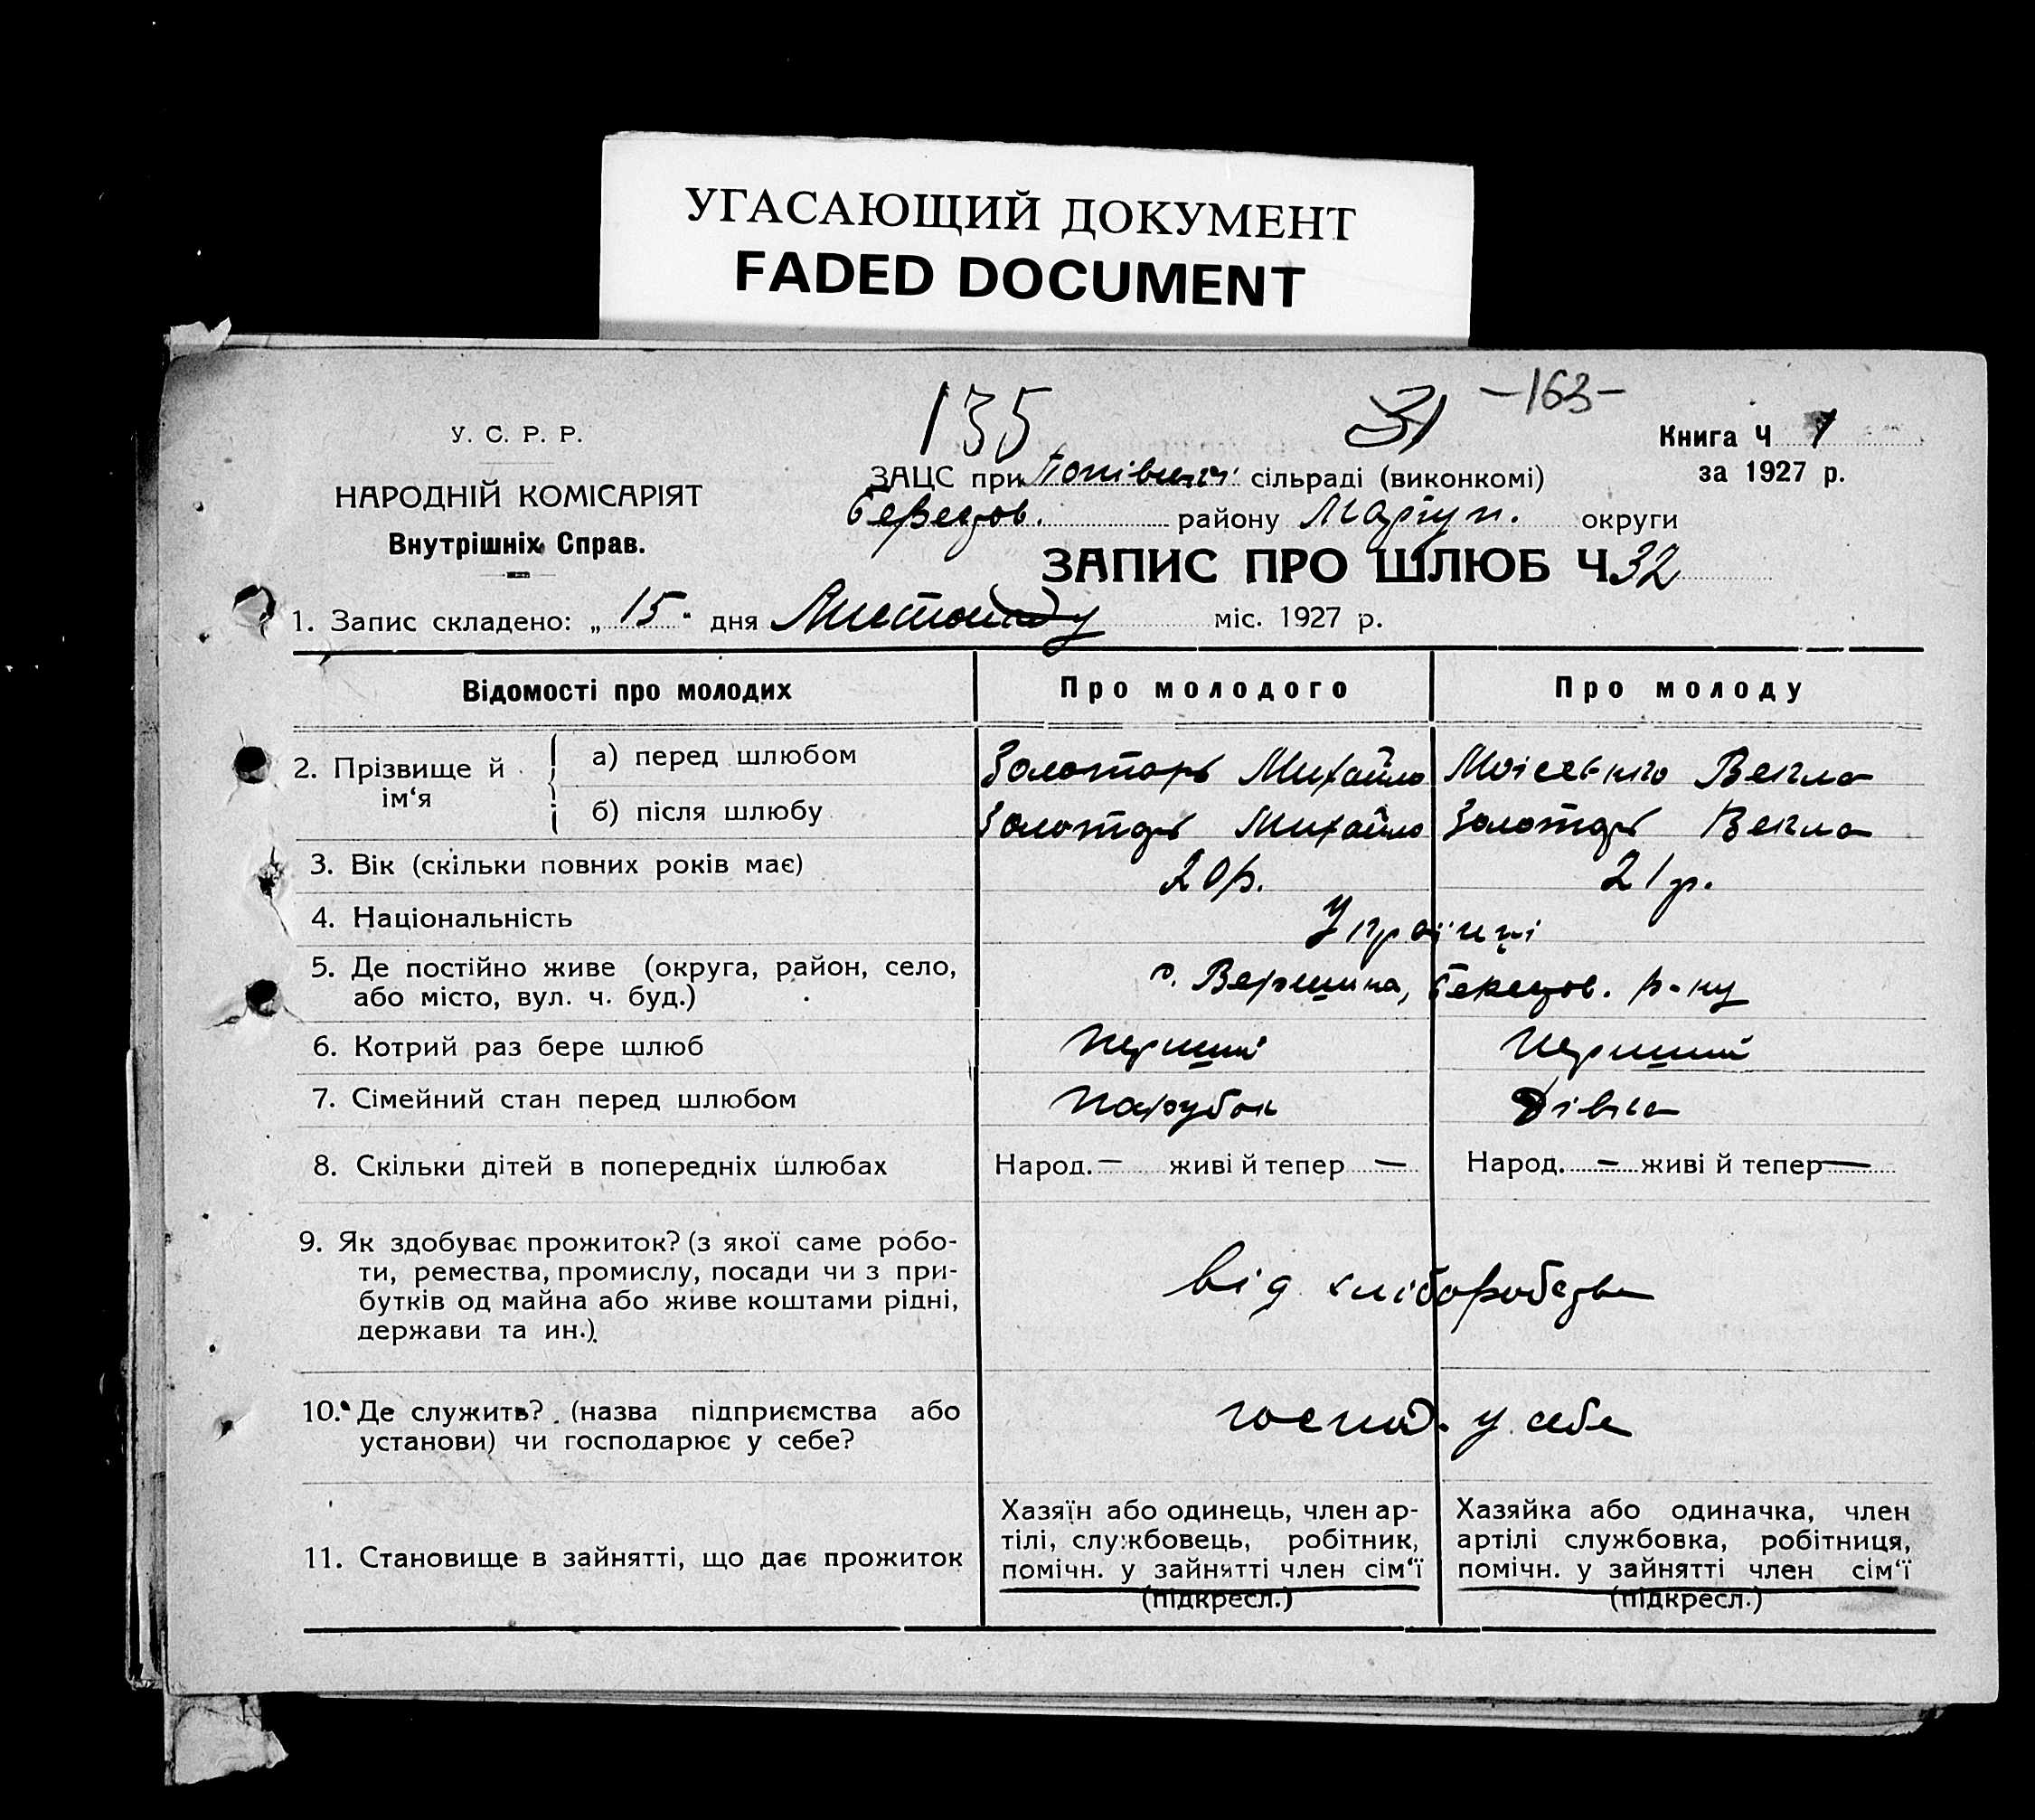 УГАСАЮЩИЙ ДОКУМЕНТ
FADED DOCUMENT
135 31 -163-
У. С. Р. Р.
НАРОДНІЙ КОМІСАРІЯТ
Внутрішніх Справ.
Книга Ч 1
за 1927 р.
ЗАЦС при сільраді (виконкомі)
району округи
ЗАПИС ПРО ШЛЮБ Ч 32
1. Запис складено: „15" дня Листопаду міс. 1927 р.
Відомості про молодих Про молодого Про молоду
2. Прізвище й ім‘я
а) перед шлюбом Золотарь Михайло Моісеєнко Векла
б) після шлюбу Золотарь Михайло Золотарь Векла
3. Вік (скільки повних років має) 20 р. 21 р.
4. Національність Українці
5. Де постійно живе (округа, район, село,
або місто, вул. ч. буд.) с. Вершина, р-ну
6. Котрий раз бере шлюб перший перший
7. Сімейний стан перед шлюбом парубок дівка
8. Скільки дітей в попередніх шлюбах Народ. — живі й тепер — Народ. — живі й тепер —
9. Як здобуває прожиток? (з якої саме робо-
ти, ремества, промислу, посади чи з при-
бутків од майна або живе коштами рідні,
держави та ин.)
від хліборобства
10. Де служить? (назва підприємства або
установи) чи господарює у себе?
господ. у себе
11. Становище в зайнятті, що дає прожиток
Хазяїн або одинець, член ар-
тілі, службовець, робітник,
помічн. у зайнятті член сім‘ї
(підкресл.)
Хазяйка або одиначка, член
артілі службовка, робітниця,
помічн. у зайнятті член сім‘ї
(підкресл.)